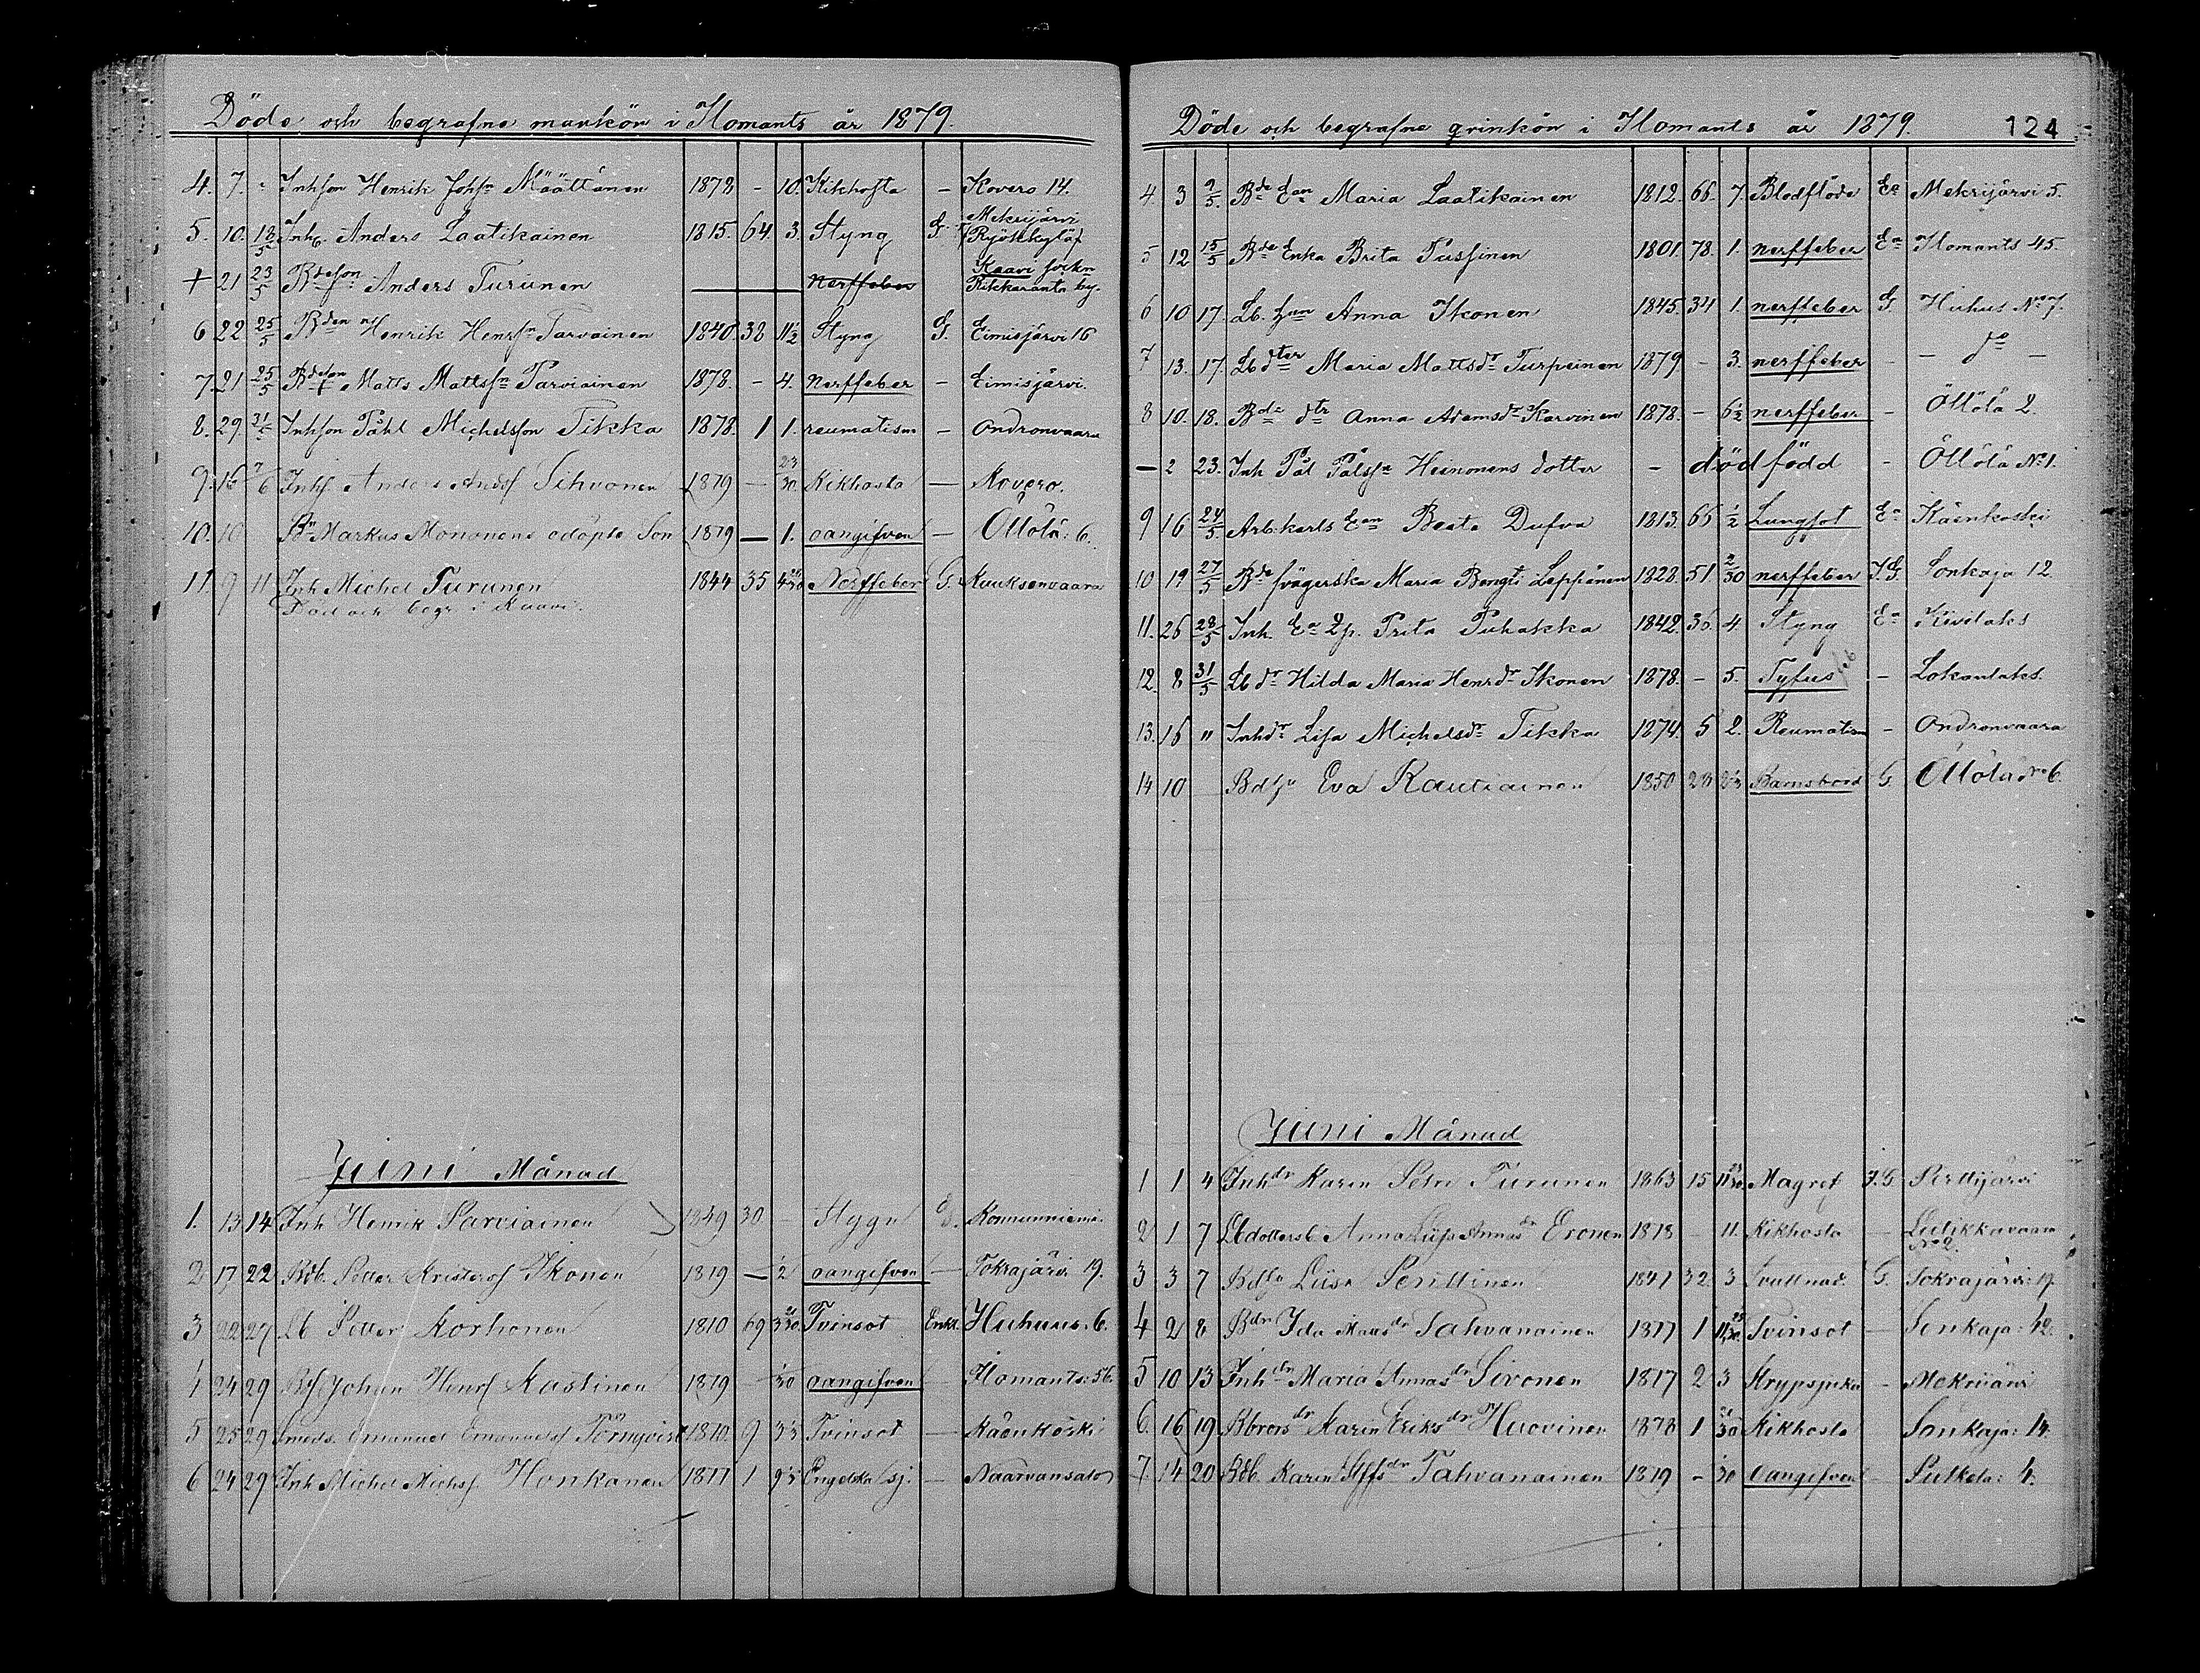 Döde och begrafne mankön i Ilomants år 1879.
4. 7. " Inhson Henrik Johsn Määttänen 1878 - 10. Kikhosta - Kovero 14.
5. 10. 18/5 Inh. Anders Laatikainen 1815. 64. 3. Styng G. Mekrijärvi
+ 21 23/5 Bdeson Anders Turunen Nerffeber Kaavi sockn
Rikkaranta by.
6 22 25/5 Bden Henrik Henrsn Tarvainen 1840. 38 11 1/2 Styng G. Eimisjärvi 16
7. 21 25/5 Bdeson Matts Mattssn Parviainen 1878. - 4. Nerffeber - Eimisjärvi.
8. 29. 31/5 Inhson Påhl Michelsson Tikka 1878. 1 1. reumatism - Ondronvaara
9. 16 7/6 Inhs Anders Andsf Sihvonen 1879 - 23/30 Kikhosta - Kovero.
10. 10 Bn Markus Mononens odöpte Son 1879 - 1. oangifven - Öllölä: 6.
11. 9 11 Inh Michel Turunen 1844 35 Nerffeber G. Kuuksenvaara
Död och begr i Kaavi.
Juni Månad
1. 13 14 Inh Henrik Parviainen 1849 30 - Stygn G. Konnunniemi
2 17 22 Bdb. Petter Kristersf Ikonen 1879 - 1/2 oangifven - Tokrajärvi 19.
3 22 27 Lb Petter Korhonen 1810 69 Tvinsot Enkl. Huhuus. 6.
4 24 29 Bsf Johan Henrsf Kastinen 1879 - 1/30 oangifven - Ilomants: 56.
5 25 29 Smeds. Emanuel Emanuelsf Törnqvist 1870. 9 Tvinsot - Käänkoski
6 24 29 Inh Michel Michsf Honkanen 1877 1 Engelska sj. - Naarvansalo
Döde och begrafne qvinkön i Ilomants år 1879. 124
4 3 9/5. Bde Ean Maria Laatikainen 1812. 66. 7. Blodflöde Ea Mekrijärvi 5.
5 12 15/5 Bde Enka Brita Pussinen 1801. 78. 1. nerffeber Ea Ilomants 45.
6 10 17. Lb. hun Anna Ikonen 1845. 34 1. nerffeber G. Huhus No 7.
7 13. 17. Lb dter Maria Mattsdr Turpeinen 1879. - 3. nerffeber - - do -
8 10. 18. Bde dtr Anna Adamsdr Karvinen 1878. - 6 1/2 nerffeber - Öllölä 2.
- 2 23. Inh Pål Pålssn Heinonens dotter - dödfödd - Öllölä No 1.
9 16 24/5. Arb. karls Ean Beata Dufva 1813. 66 1/2 Lungsot Ea Käenkoski
10 19 27/5 Bde svägerska Maria Bengtr Leppänen 1828. 51 2/30 nerffeber I.G. Sonkaja 12
11. 26 28/5 Inh. Ea Brita Puhakka 1842. 36. 4. Styng Ea Kivilaks
12. 8 31/5 Lb dr Hilda Maria Henrdr Ikonen 1878. - 5. Tyfus - Lokanlaks.
13. 16 " Inhdr Lisa Michelsdr Tikka 1874. 5 2. Reumatism - Ondronvaara
14 10 Bdhu Eva Rautiainen 1850 28 Barnsbörd G. Öllölä No 6.
Juni Månad
1 1 4 Inhdr Karin Petri Turunen 1863 15 Magref I.G Perttijärvi
2 1 7 Lb dotters b Anna Liisa Annas dr Eronen 1878 - 11. Kikhosta -
No 2.
3 3 7 Bdhu Liisa Penttinen 1847 32 3 Svullnad. G. Tokrajärvi: 19.
4 2 8 Bdr Ida Mattsdr Tahvanainen 1877 1 Tvinsot - Sonkaja: 12.
5 10 13 Inhdr Maria Annasdr Sivonen 1877 2 3 Strypsjuka - Mekrijärvi
6. 16 19 Bbrorsdr Karin Eriksdr Huovinen 1878 1 Kikhosta Sonkaja: 14.
7 14 20 Bdb. Karin Stffsdr Tahvanainen 1879 - Oangifven - Putkela: 4.